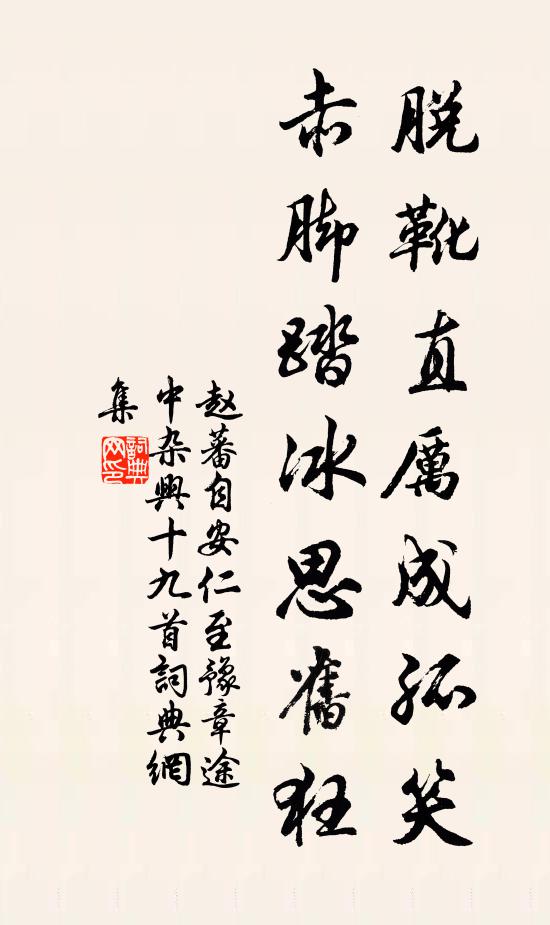 脱靴直厲成孤笑
赤脚踏冰思舊狂
赵蕃自安仁至豫章途
中杂興十九首詞典網
集
詞典網印